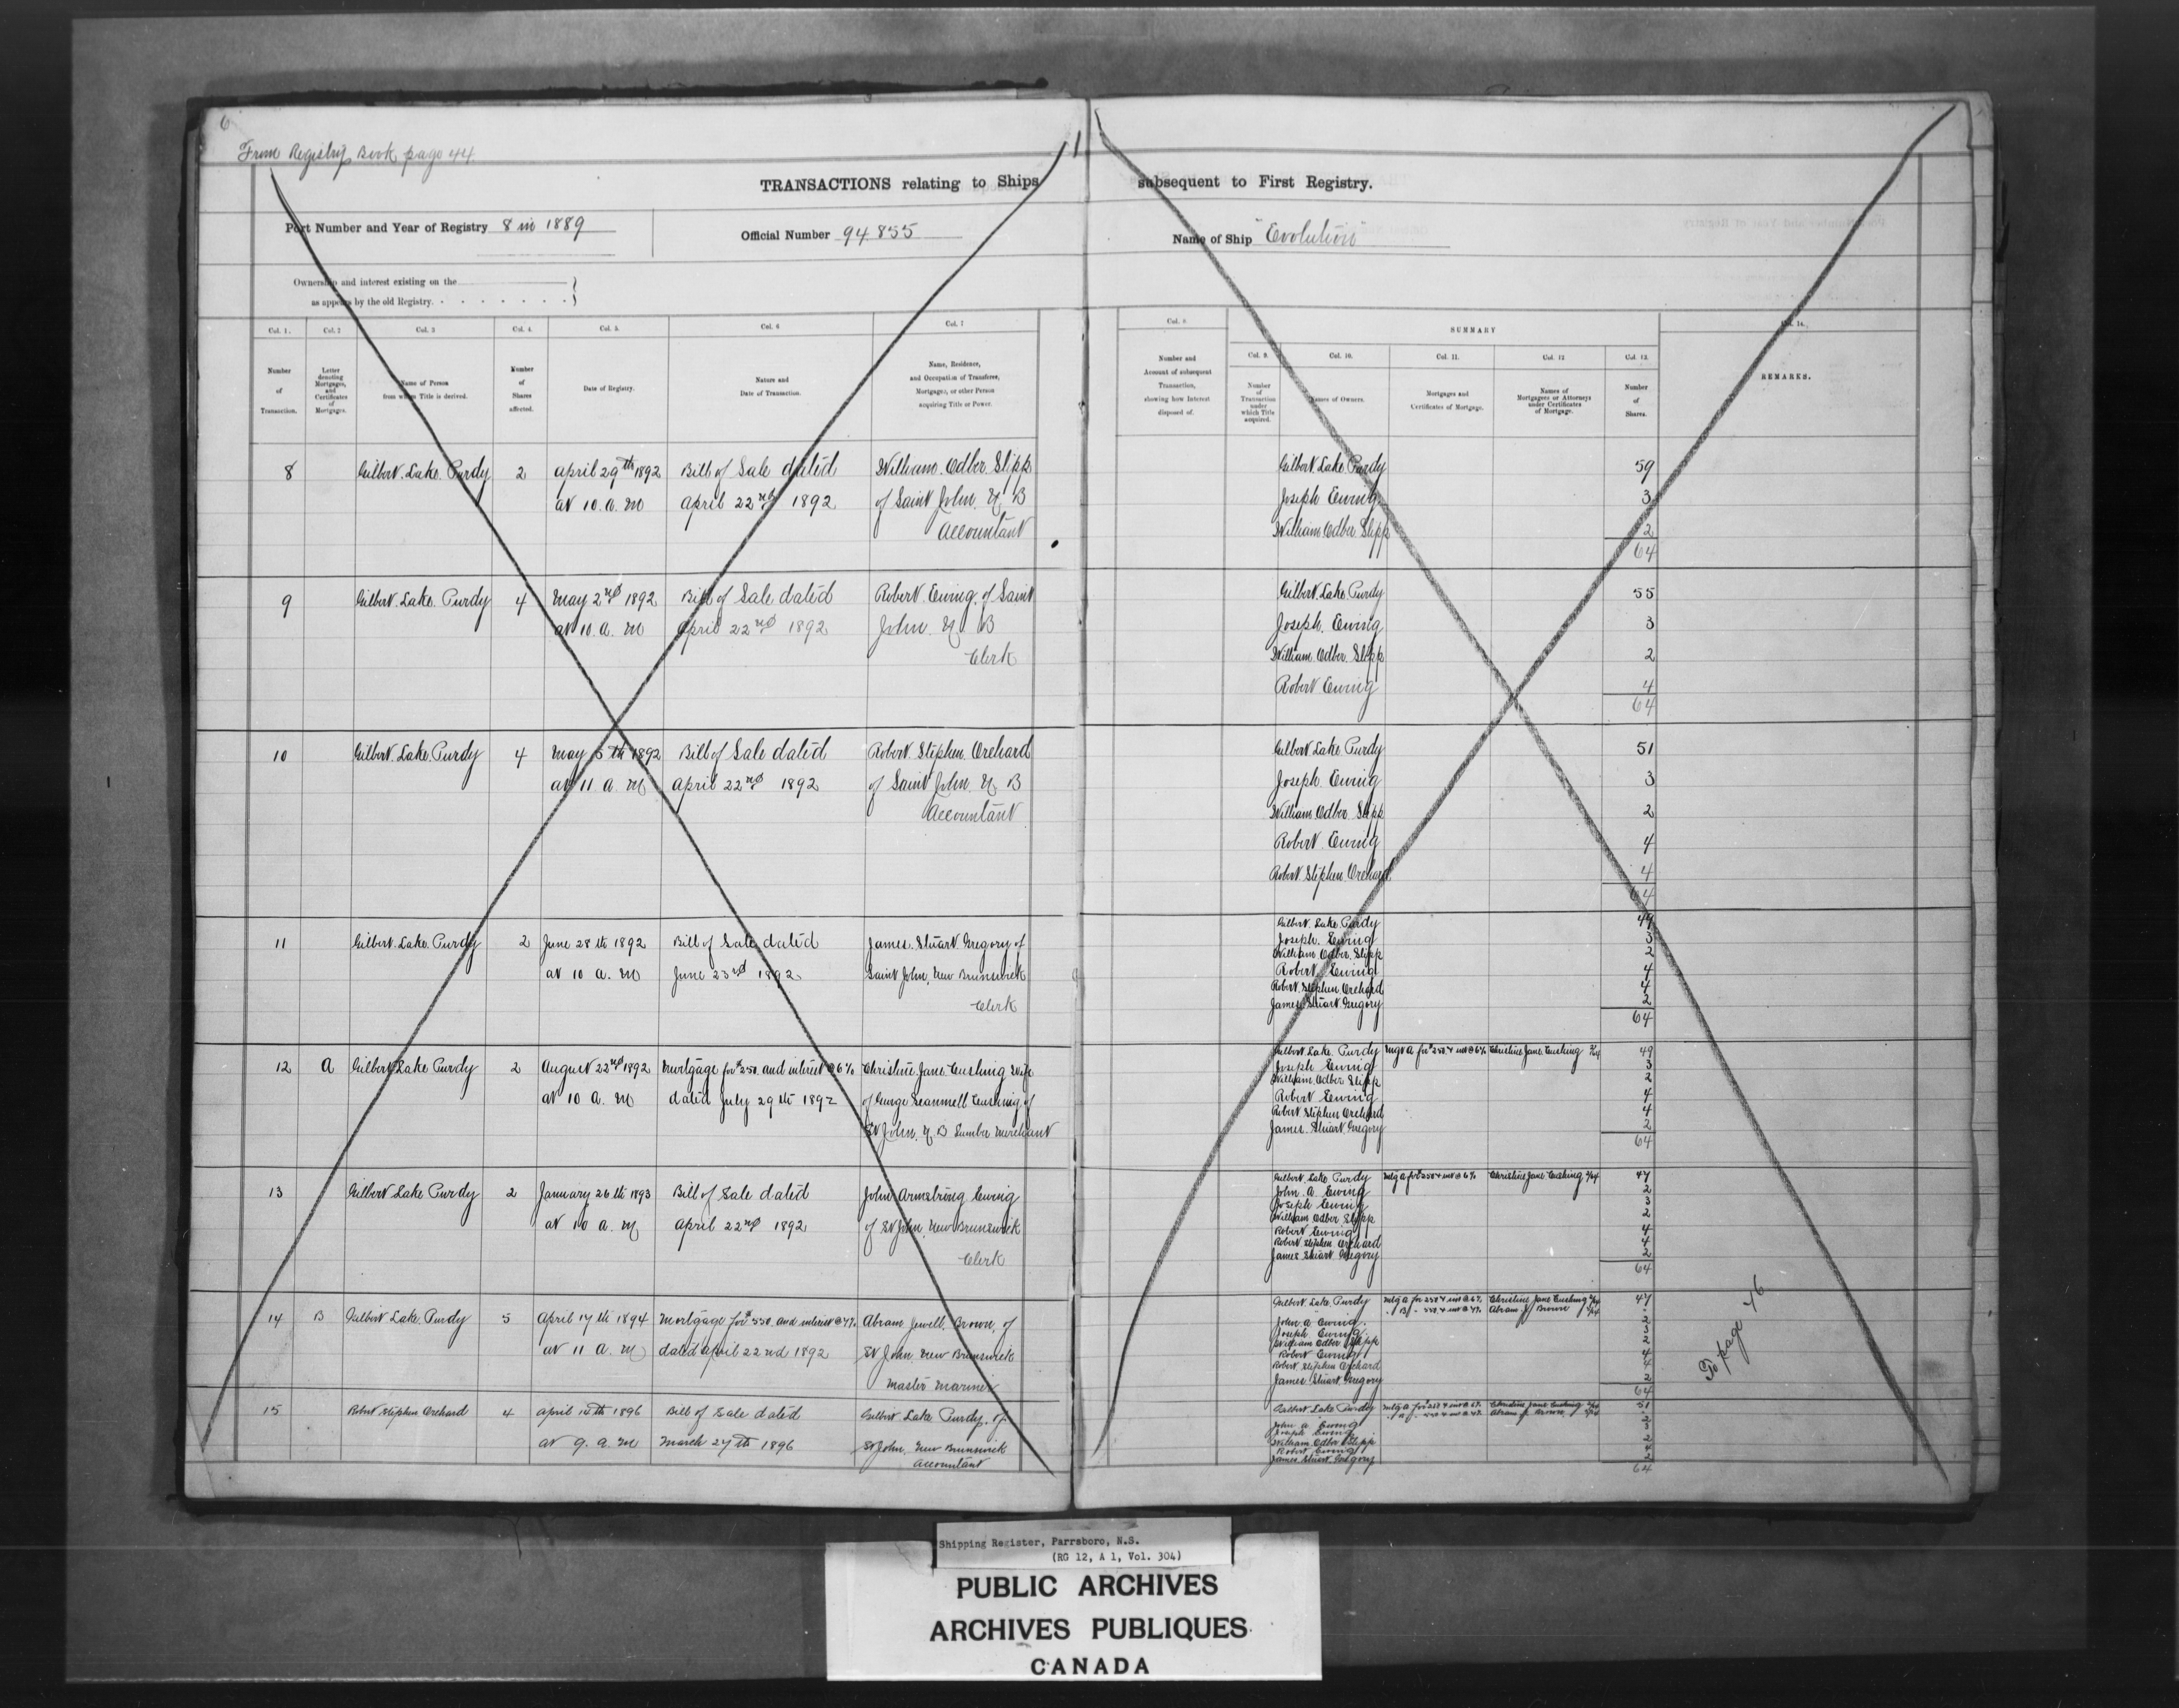 6
From Registry Book page 44
TRANSACTIONS relating to Ships subsequent to First Registry.
Port Number and Year of Registry 8 in 1889
Official Number 94.855
Name of Ship "Evolution"
Ownership and interest existing on the
as appears by the old Registry.
Col. 1.
Col. 2
Col. 3
Col. 4.
Col. 5.
Col. 6
Col. 7
Number of Transaction.
Letter denoting Mortgages, and Certificates of Mortgages.
Name of Person from whom Title is derived.
Number of Shares affected.
Date of Registry.
Nature and Date of Transaction.
Name, Residence, and Occupation of Transferee, Mortgagee, or other Person acquiring Title or Power.
Number and Account of subsequent Transaction, showing how Interest disposed of.
SUMMARY
Col. 9.
Col. 10.
Col. 11.
Col. 12
Col. 13.
Col. 14.
Number of Transaction under which Title acquired.
Names of Owners.
Mortgages and Certificates of Mortgage.
Names of Mortgagees or Attorneys under Certificates of Mortgage.
Number of Shares.
REMARKS.
8 Gilbert Lake Purdy 2 april 29th 1892 Bill of Sale dated William Odber Slipp
at 10. a. m April 22nd 1892 of Saint John. N B
Accountant
Gilbert Lake Purdy 59
Joseph Ewing 3
William Odber Slipp 2
64
9 Gilbert Lake Purdy 4 May 2nd 1892 Bill of Sale dated Robert Ewing of Saint
at 10. a. m April 22nd 1892 John N B
Clerk
Gilbert Lake Purdy 55
Joseph Ewing 3
William Odber Slipp 2
Robert Ewing 4
64
10 Gilbert Lake Purdy 4 May 5th 1892 Bill of Sale dated Robert Stephen Orchard
at 11 a. m April 22nd 1892 of Saint John. N B
Accountant
Gilbert Lake Purdy 51
Joseph Ewing 3
William Odber Slipp 2
Robert Ewing 4
Robert Stephen Orchard 4
64
11 Gilbert Lake Purdy 2 June 28th 1892 Bill of Sale dated James Stuart Gregory of
at 10 a. m June 23rd 1892 Saint John, New Brunswick
Clerk
Gilbert Lake Purdy 49
Joseph Ewing 3
William Odber Slipp 2
Robert Ewing 4
Robert Stephen Orchard 4
James Stuart Gregory 2
64
12 A Gilbert Lake Purdy 2 August 22nd 1892 Mortgage for $250. and interest @ 6% Christine Jane Cushing Wife
at 10 a. m dated July 29th 1892 of George Scammell Cushing of
St John, N B Lumber Merchant
Gilbert Lake Purdy Mtg A for $250 & int @ 6% Christine Jane Cushing 2/64 49
Joseph Ewing 3
William Odber Slipp 2
Robert Ewing 4
Robert Stephen Orchard 4
James Stuart Gregory 2
64
13 Gilbert Lake Purdy 2 January 26th 1893 Bill of Sale dated John Armstrong Ewing
at 10 a. m April 22nd 1892 of St John, New Brunswick
Clerk
Gilbert Lake Purdy Mtg A for $250 & int @ 6% Christine Jane Cushing 2/64 47
John A Ewing 2
Joseph Ewing 3
William Odber Slipp 2
Robert Ewing 4
Robert Stephen Orchard 4
James Stuart Gregory 2
64
14 B Gilbert Lake Purdy 5 April 17th 1894 Mortgage for $550. and interest @ 7% Abram Jewell Brown, of
at 11 a. m dated April 22nd 1892 St John New Brunswick
Master Mariner
Gilbert Lake Purdy Mtg A for 250 & int @ 6% Christine Jane Cushing 2/64 47
" B " 550 & int @ 7% Abram J Brown 5/64
John A Ewing 2
Joseph Ewing 3
William Odber Slipp 2
Robert Ewing 4
Robert Stephen Orchard 4
James Stuart Gregory 2
64
To page 46
15 Robert Stephen Orchard 4 April 10th 1896 Bill of Sale dated Gilbert Lake Purdy, of
at 9. a. m March 27th 1896 St John, New Brunswick
Accountant
Gilbert Lake Purdy Mtg A for 250 & int @ 6% Christine Jane Cushing 2/64 51
" B " 550 & int @ 7% Abram J Brown 5/64
John A Ewing 2
Joseph Ewing 3
William Odber Slipp 2
Robert Ewing 4
James Stuart Gregory 2
64
Shipping Register, Parrsboro, N.S.
(RG 12, A 1, Vol. 304)
PUBLIC ARCHIVES
ARCHIVES PUBLIQUES
CANADA